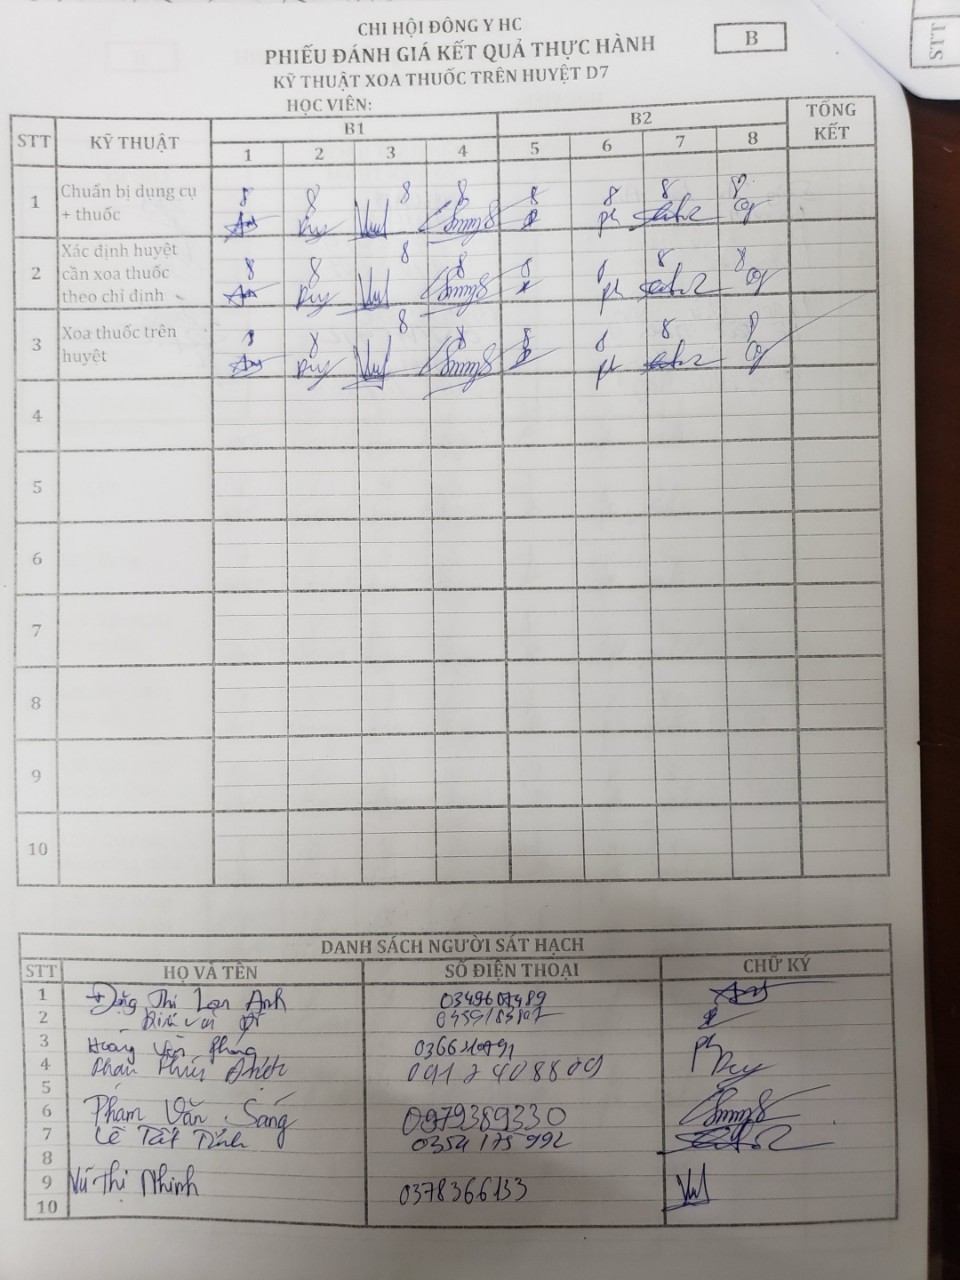 CHI HỘI ĐÔNG Y HC
PHIẾU ĐÁNH GIÁ KẾT QUẢ THỰC HÀNH
B
KỸ THUẬT XOA THUỐC TRÊN HUYỆT D7
HỌC VIÊN:
STT
STT KỸ THUẬT B1 B2 TỔNG KẾT
1 2 3 4 5 6 7 8
1 Chuẩn bị dụng cụ + thuốc 8 8 8 8 8 8 8 8
2 Xác định huyệt cần xoa thuốc theo chỉ định 8 8 8 8 8 8 8 8
3 Xoa thuốc trên huyệt 8 8 8 8 8 8 8 8
4
5
6
7
8
9
10
DANH SÁCH NGƯỜI SÁT HẠCH
STT HỌ VÀ TÊN SỐ ĐIỆN THOẠI CHỮ KÝ
1 Đặng Thị Lan Anh 0349607489
2
3 Hoàng Văn Phong
4 0912408809
5
6 Phạm Văn Sáng 0979389330
7 Lê Tất Tính 0354175992
8
9 Vũ Thị Nhinh 0378366133
10